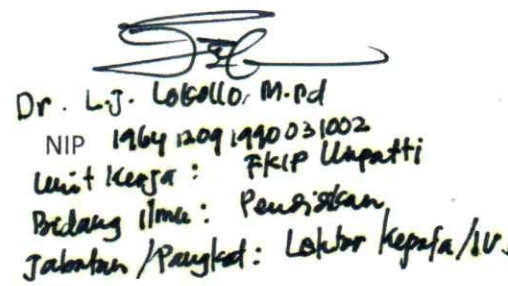 Dr. L.J. Lokollo, M.Pd
NIP 19641209 1990031002
Unit Kerja : FKIP Unpatti
Bidang Ilmu : Pendidikan
Jabatan / Pangkat : Lektor Kepala / IV